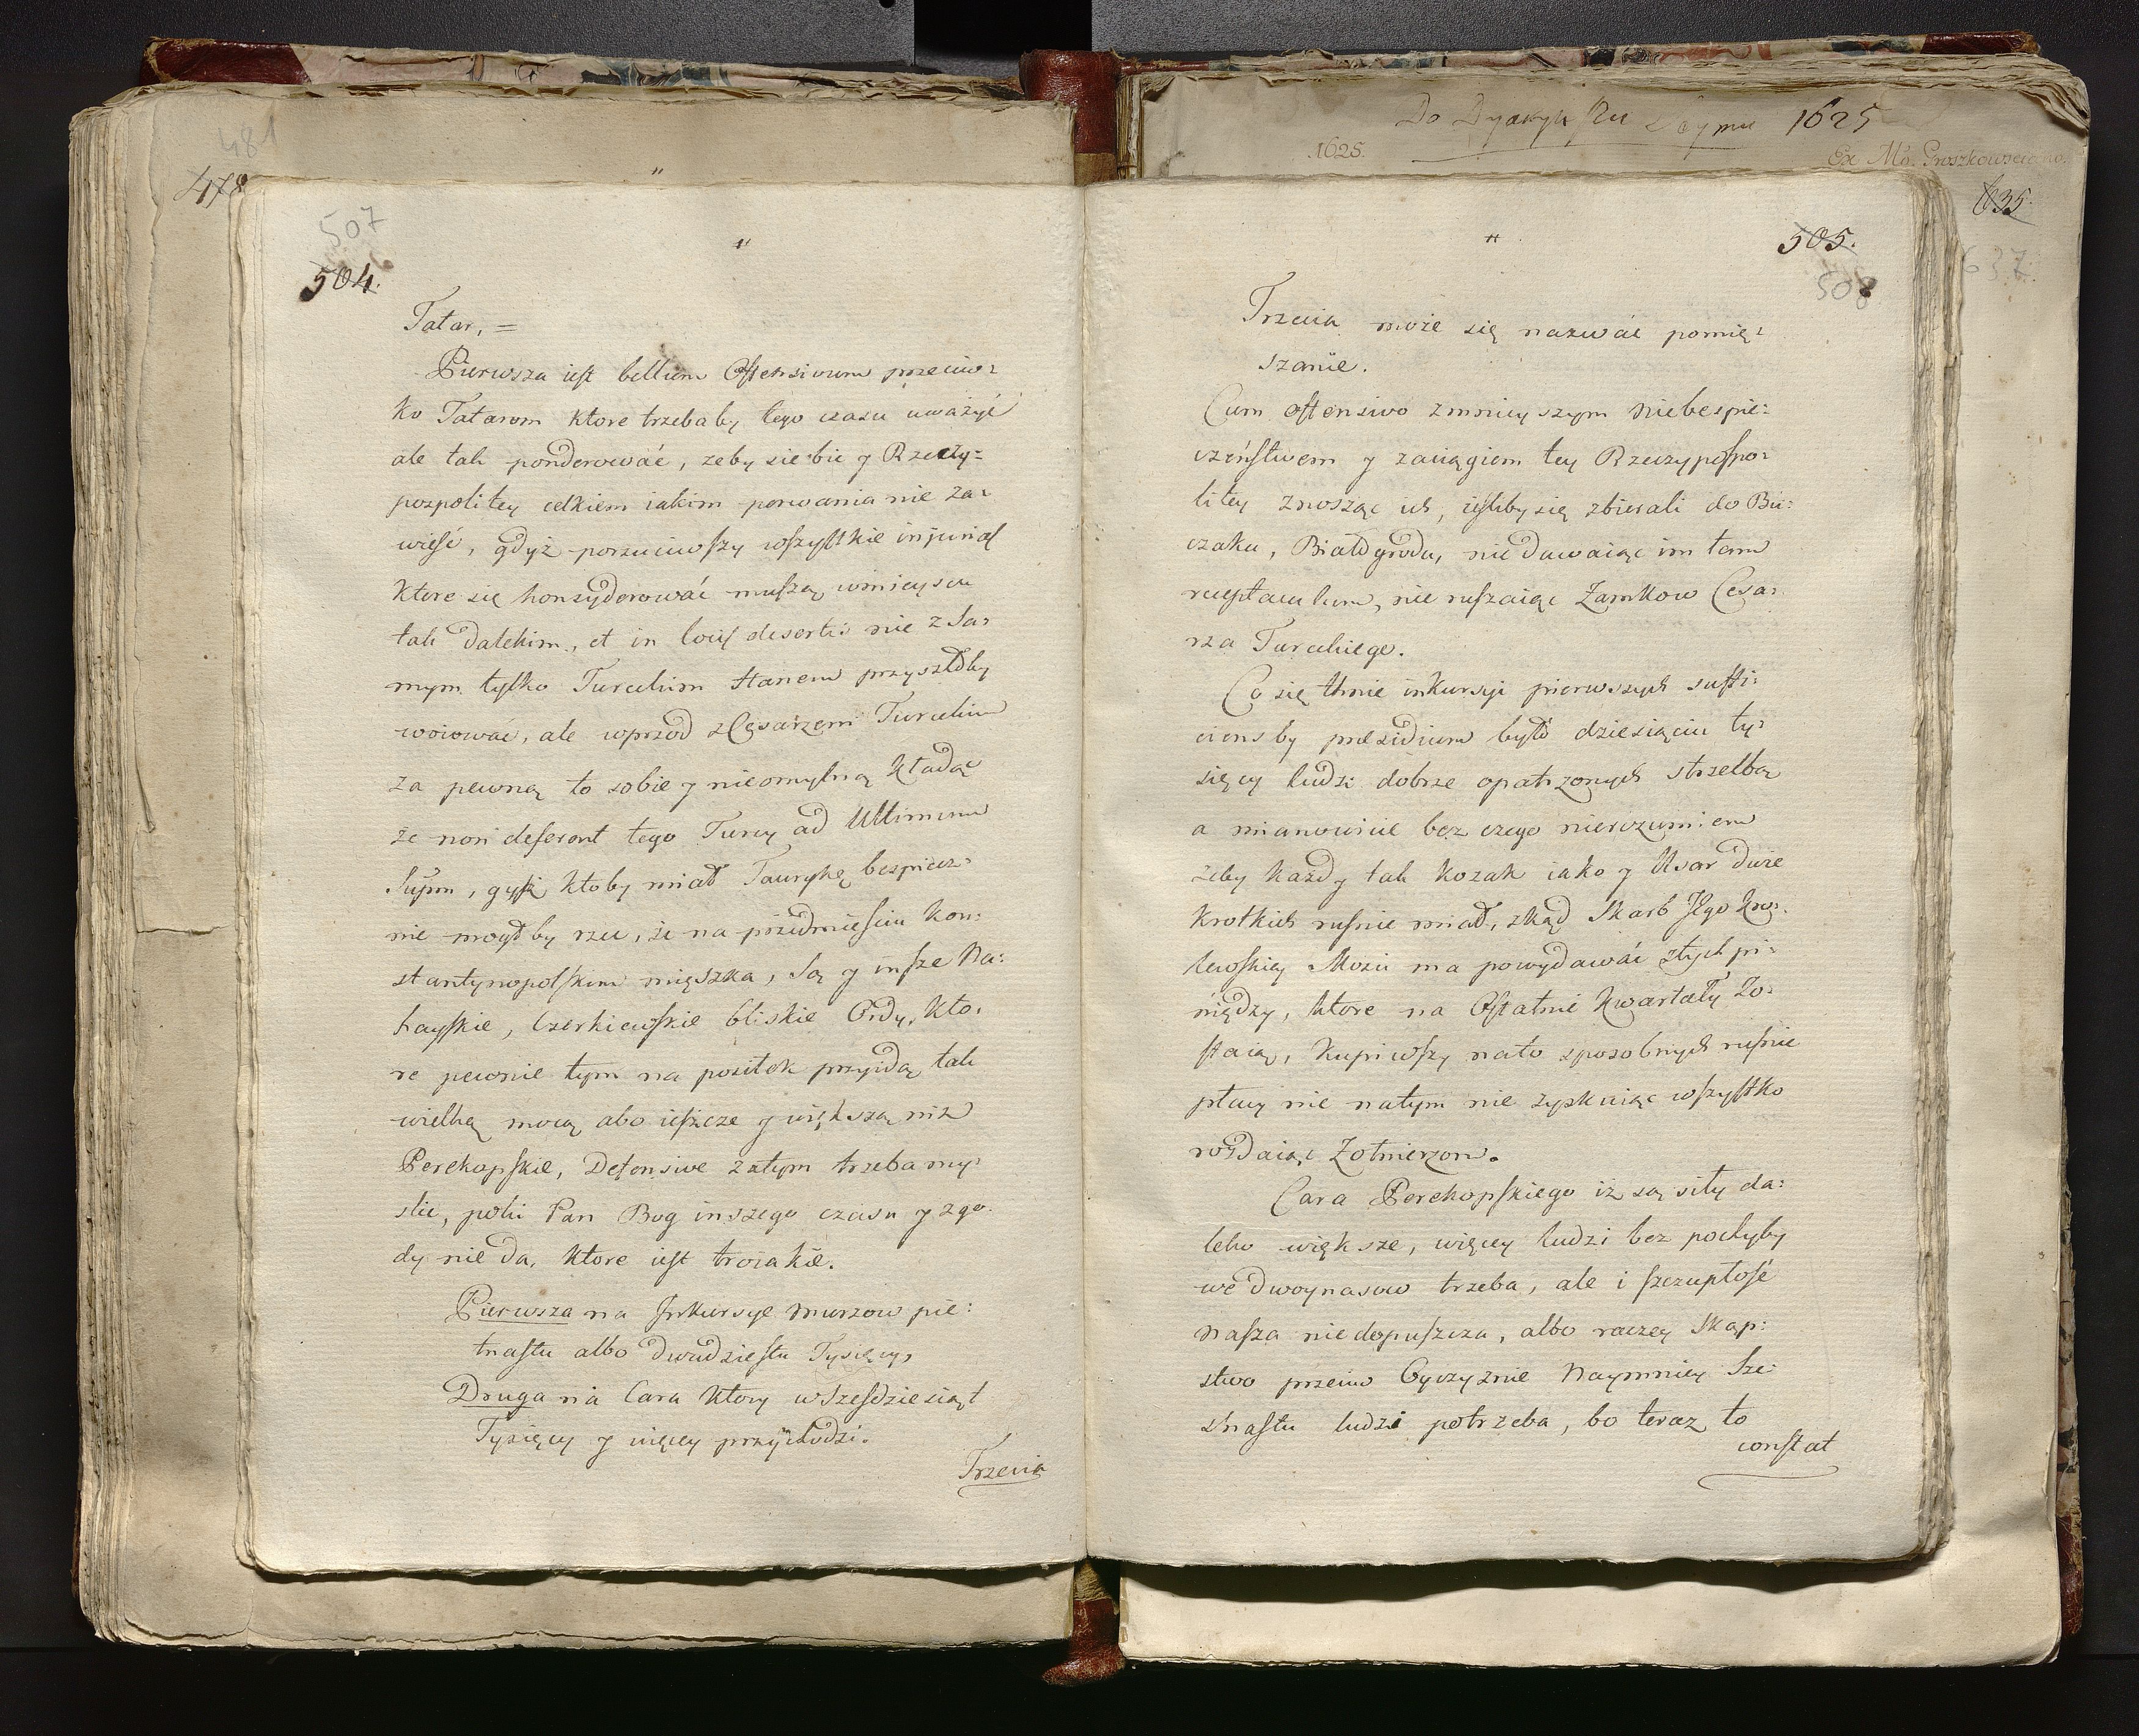 481
478
"
507
504.
"
Tatar, =
Pierwsza iest bellum Offensivum przeciw=
ko Tatarom ktore trzebaby tego czasu uważyć
ale tak ponderować, żeby siebie y Rzeczy=
pospolitey całkiem iakim porwania nie za=
wieść, gdyż porzuciwszy wszystkie injurias
ktore się konsyderować muszą, w mieyscu
tak dalekim, et in locis desertis nie z Sa=
mym tylko Tureckim Hanem przyszłoby
woiować, ale wprzod z Cesarzem Tureckim
za pewną to sobie y nieomylną kładąc
że non deserent tego Turcy ad Ultimum
Suum, gdyż ktoby miał Taurykę bespiecz=
nie mogłby rzec, że na przedmieściu Kon=
stantynopolskim mięszka, Są y insze Na=
hayskie, Czerkiewskie bliskie Ordy, kto=
re pewnie tym na positek przyidą tak
wielką mocą abo ieszcze y większą niż
Perekopskie, Defensive zatym trzeba my=
slić, poki Pan Bog inszego czasu y zgo=
dy nie da, ktore iest troiakie.
Pierwsza na Inkursye murzow pie=
tnastu albo dwudziestu Tysięcy,
Druga na Cara ktory w Szesdziesiąt
Tysięcy y więcy przychodzi.
Trzecia
Do Dyaryuszu Seymu 1625
1625.
635.
637.
"
505.
508
Trzecia może się nazwać pomię=
szanie.
Cum offensivo z mnieyszym niebespie=
czeństwem y zaciągiem tey Rzeczypospo=
litey znosząc ich, iesliby się zbierali do Bu=
czaku, Białogrodu, nie dawaiąc im tam
receptaculum, nie ruszaiąc Zamkow Cesa=
rza Tureckiego.
Co się tknie inkursyi pierwszych suffi=
ciens by presidium było dziesiąciu ty=
sięcy ludzi dobrze opatrzonych strzelbą
a mianowicie bez czego nierozumiem
żeby każdy tak kozak iako y Usar dwie
krotkich rusnic miał, zkąd Skarb Jego Kro=
lewskiey Mości ma powydawać z tych pi=
niędzy, ktore na Ostatnie kwartały Zo=
staią, kupiwszy nato sposobnych rusnic
płacy nic natym nie zyskuiąc wszystko
rozdaiąc Zołnierzom.
Cara Perekopskiego iż są siły da=
leko większe, więcey ludzi bez pochyby
we dwoynasow trzeba, ale i szczupłość
nasza niedopuszcza, albo raczey Skąp=
stwo przeciw Oyczyznie Naymniey Sze=
snastu ludzi potrzeba, bo teraz to
constat